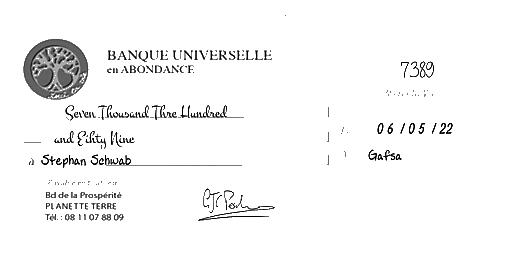 BANQUE UNIVERSELLE
en ABONDANCE
7389
Seven Thousand Thre Hundred
and Eihty Nine
06/05/22
à Stephan Schwab
Gafsa
Bd de la Prospérité
PLANETTE TERRE
Tél. : 08 11 07 88 09